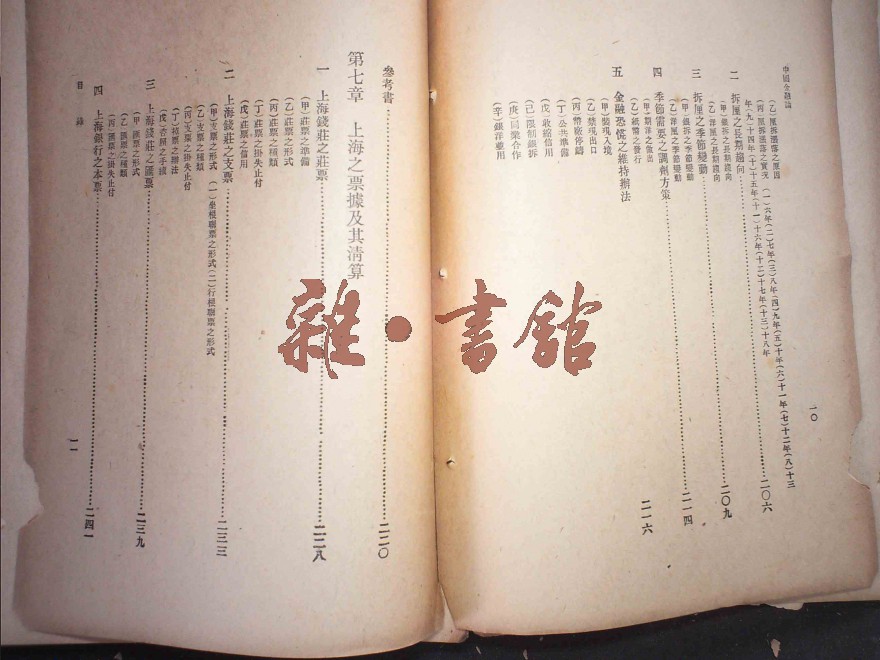 中國金融論
一〇
(乙)厘拆漲落之原因
(丙)厘拆漲落之實況 (一)六年(二)七年(三)八年(四)九年(五)十年(六)十一年(七)十二年(八)十三
年(九)十四年(十)十五年(十一)十六年(十二)十七年(十三)十八年
二〇六
二 拆厘之長期趨向
二〇九
(甲)銀拆之長期趨向
(乙)洋厘之長期趨向
三 拆厘之季節變動
二一四
(甲)銀拆之季節變動
(乙)洋厘之季節變動
四 季節需要之調劑方策
二一六
(甲)期洋之放出
(乙)紙幣之發行
五 金融恐慌之維持辦法
(甲)裝現入境
(乙)禁現出口
(丙)幣廠停鑄
(丁)公共準備
(戊)收縮信用
(己)限制銀拆
(庚)同業合作
(辛)銀洋並用
參考書
二二〇
第七章 上海之票據及其清算
一 上海錢莊之莊票
二二八
(甲)莊票之準備
(乙)莊票之形式
(丙)莊票之種類
(丁)莊票之掛失止付
(戊)莊票之信用
二 上海錢莊之支票
二三三
(甲)支票之形式 (一)坐根聯票之形式(二)行根聯票之形式
(乙)支票之種類
(丙)支票之掛失止付
(丁)
三 上海錢莊之匯票
二三九
(甲)匯票之形式
(乙)匯票之種類
(丙)匯票之掛失止付
四 上海銀行之本票
二四一
目錄
一一
雜·書館